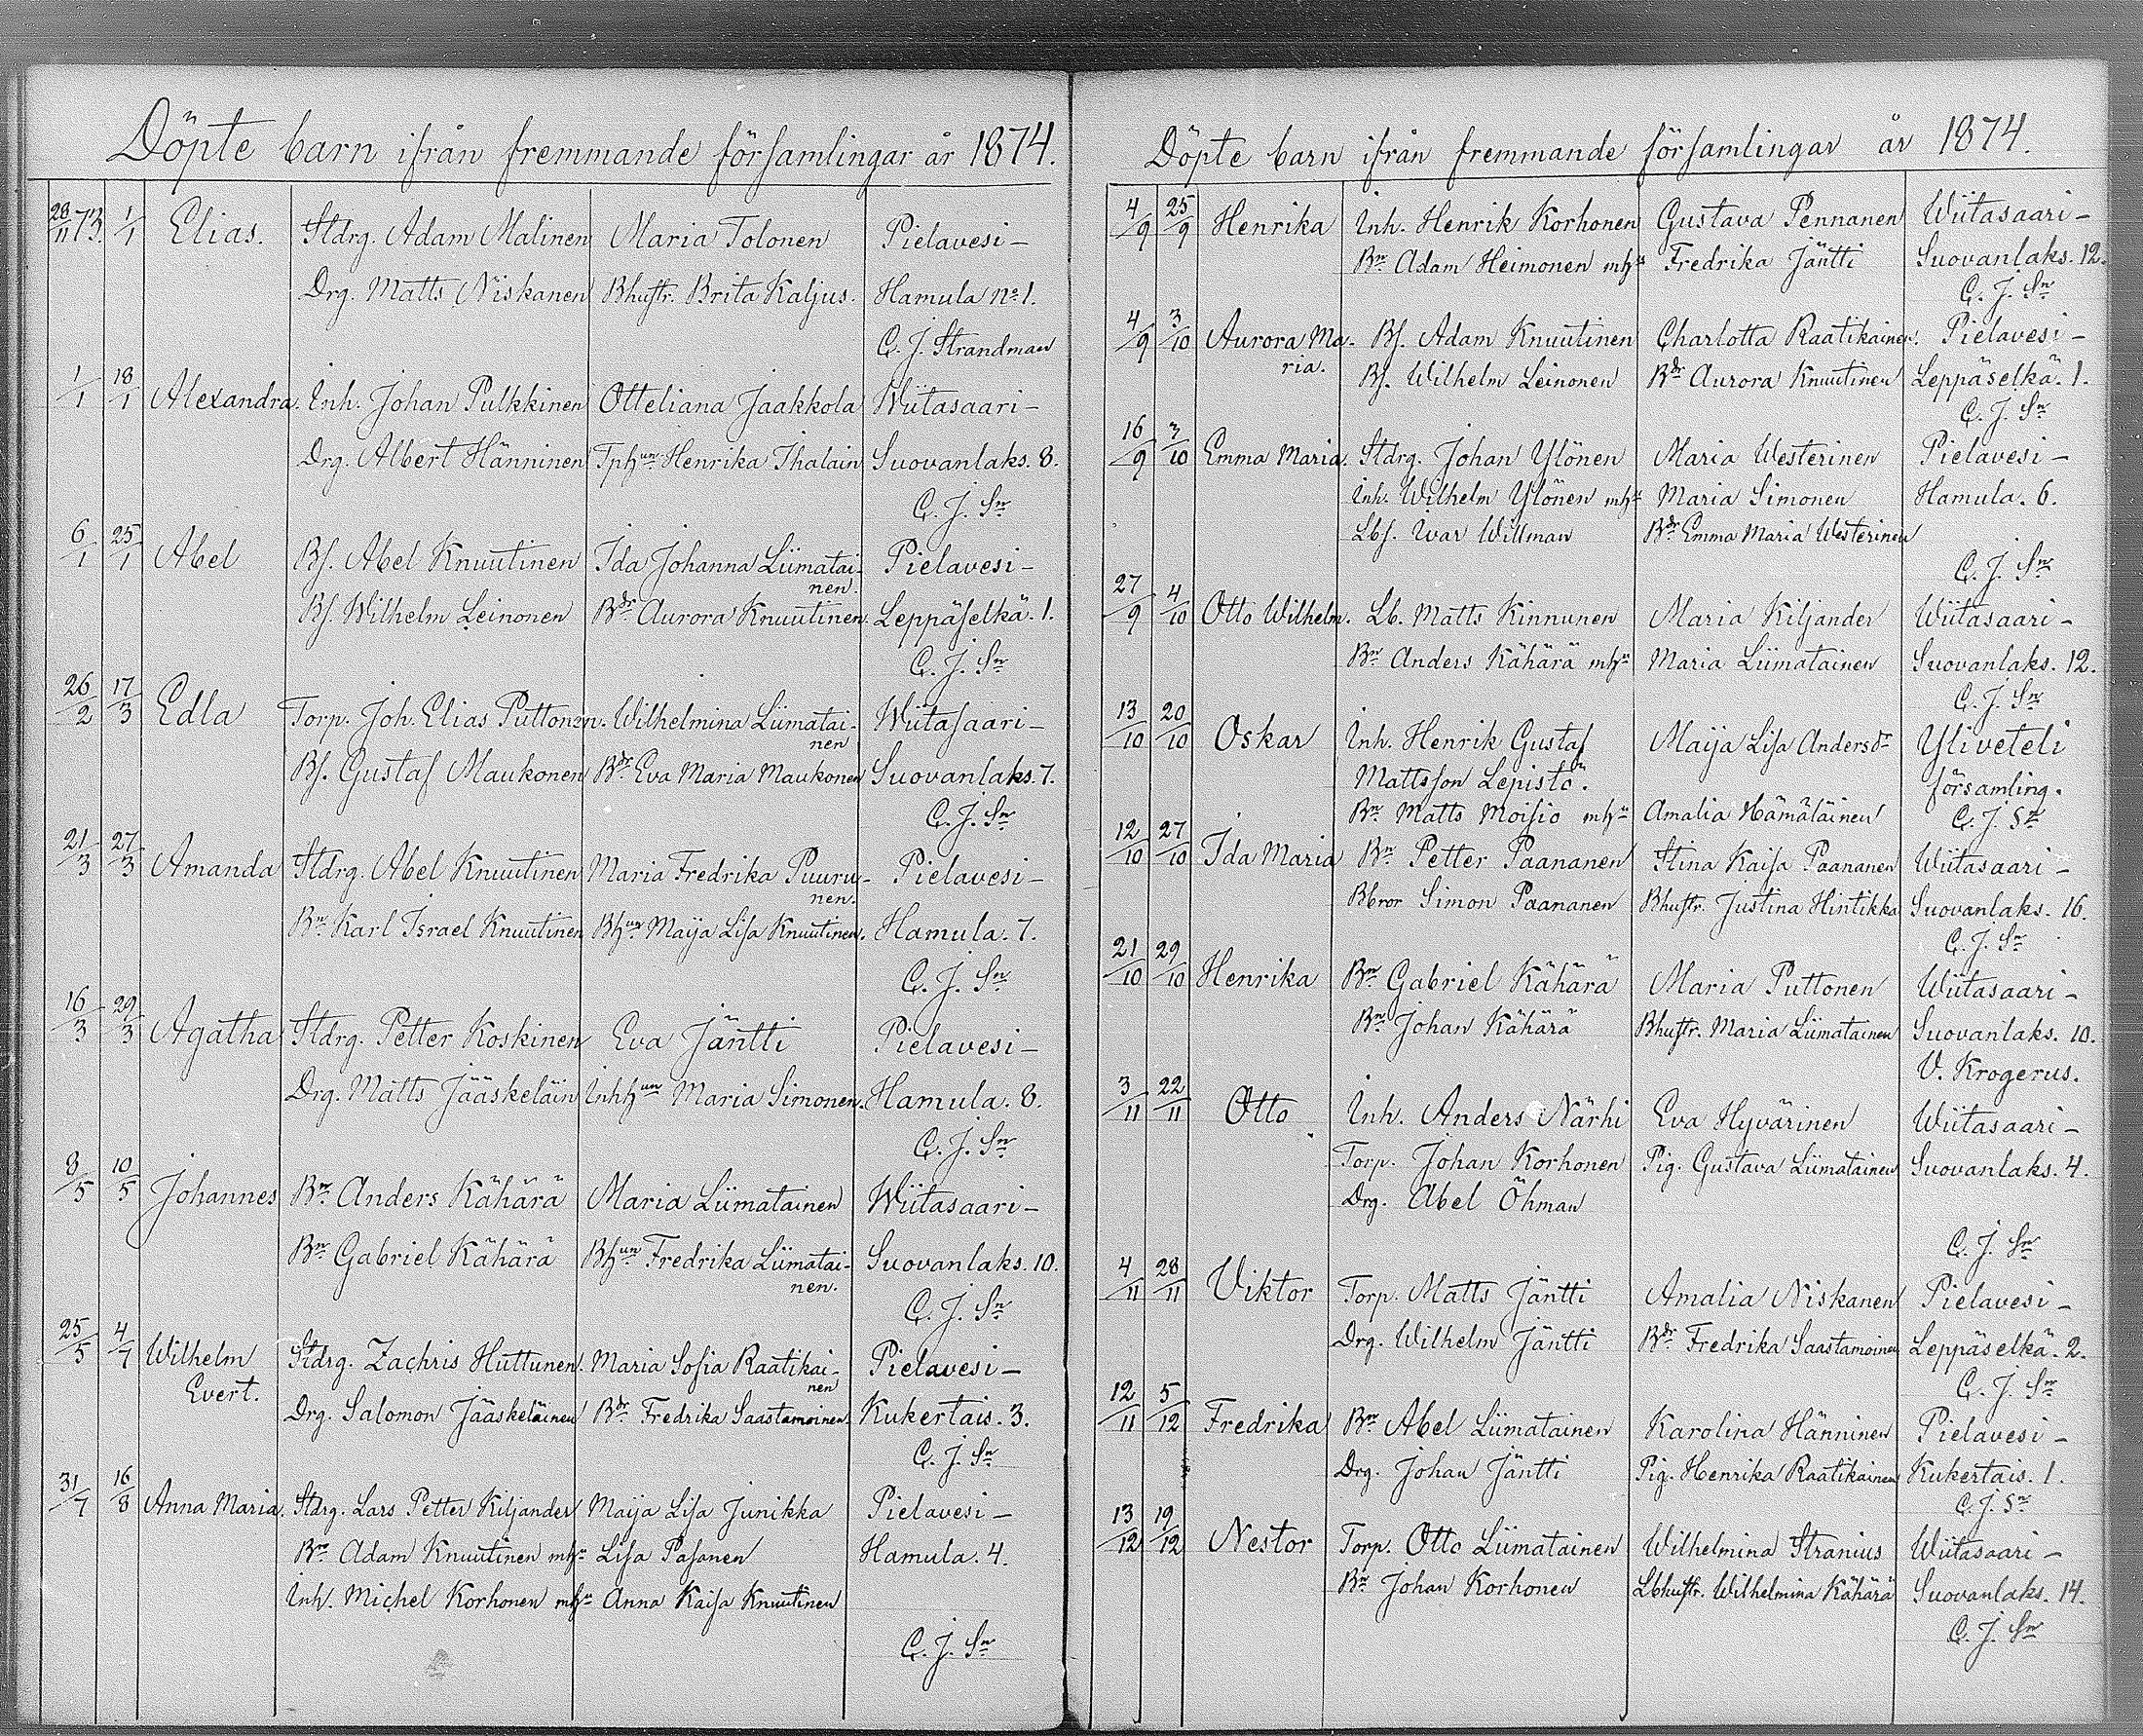 Döpte barn ifrån fremmande församlingar år 1874.
28/11 73. 1/1 Elias. Stdrg. Adam Malinen Maria Tolonen Pielavesi-
Drg. Matts Niskanen Bhustr. Brita Kaljus. Hamula No 1.
C. J. Strandman
1/1 18/1 Alexandra. Inh. Johan Pulkkinen Otteliana Jaakkola Wiitasaari-
Drg. Albert Hänninen Tphun Henrika Ihalain Suovanlaks. 8.
C. J. Sn
6/1 25/1 Abel Bs. Abel Knuutinen Ida Johanna Liimatai-
nen.
Pielavesi-
Bs. Wilhelm Leinonen Bdr Aurora Knuutinen. Leppäselkä. 1.
C. J. Sn
26/2 17/3 Edla Torp. Joh. Elias Puttonen. Wilhelmina Liimatai-
nen
Wiitasaari-
Bs. Gustaf Maukonen Bdr Eva Maria Maukonen Suovanlaks. 7.
C. J. Sn
21/3 27/3 Amanda Stdrg. Abel Knuutinen Maria Fredrika Puuru-
nen.
Pielavesi-
Bn Karl Israel Knuutinen Bhun Maija Lisa Knuutinen. Hamula. 7.
C. J. Sn
16/3 29/3 Agatha Stdrg. Petter Koskinen Eva Jäntti Pielavesi-
Drg. Matts Jääskeläin Inhhun Maria Simonen. Hamula. 8.
C. J. Sn
8/5 10/5 Johannes Bn Anders Kähärä Maria Liimatainen Wiitasaari-
Bn Gabriel Kähärä Bhun Fredrika Liimatai-
nen.
Suovanlaks. 10.
C. J. Sn
25/5 4/7 Wilhelm Stdrg. Zachris Huttunen. Maria Sofia Raatikai-
nen
Pielavesi-
Evert.
Drg. Salomon Jääskeläinen Bdr Fredrika Saastamoinen. Kukertais. 3.
C. J. Sn
31/7 16/8 Anna Maria. Stdrg. Lars Petter Kiljander Maija Lisa Junikka Pielavesi-
Bn Adam Knuutinen mhu Lisa Pasanen Hamula. 4.
Inh. Michel Korhonen mhu Anna Kaisa Knuutinen
C. J. Sn
Döpte barn ifrån fremmande församlingar år 1874.
4/9 25/9 Henrika Inh. Henrik Korhonen Gustava Pennanen Wiitasaari-
Bn Adam Heimonen mhu Fredrika Jäntti Suovanlaks. 12.
C. J. Sn
4/9 3/10 Aurora Ma- Bs. Adam Knuutinen Charlotta Raatikainen. Pielavesi-
ria.
Bs. Wilhelm Leinonen Bdr Aurora Knuutinen Leppäselkä. 1.
C. J. Sn
16/9 3/10 Emma Maria. Stdrg. Johan Ylönen Maria Westerinen Pielavesi-
Inh. Wilhelm Ylönen mhu Maria Simonen Hamula. 6.
Lbs. Ivar Willman Bdr Emma Maria Westerinen
C. J. Sn
27/9 4/10 Otto Wilhelm. Lb. Matts Kinnunen Maria Kiljander Wiitasaari-
Bn Anders Kähärä mhu Maria Liimatainen Suovanlaks. 12.
C. J. Sn
13/10 20/10 Oskar Inh. Henrik Gustaf Maija Lisa Andersdr Yliveteli
Mattsson Lepistö. församling.
Bn Matts Moisio mhu Amalia Hämäläinen C. J. Sn
12/10 27/10 Ida Maria Bn Petter Paananen Stina Kaisa Paananen Wiitasaari-
Bbror Simon Paananen Bhustr. Justina Hintikka Suovanlaks. 16.
C. J. Sn
21/10 29/10 Henrika Bn Gabriel Kähärä Maria Puttonen Wiitasaari-
Bn Johan Kähärä Bhustr. Maria Liimatainen Suovanlaks. 10.
V. Krogerus.
3/11 22/11 Otto Inh. Anders Närhi Eva Hyvärinen Wiitasaari-
Torp. Johan Korhonen Pig. Gustava Liimatainen Suovanlaks. 4.
Drg. Abel Öhman
C. J. Sn
4/11 28/11 Viktor Torp. Matts Jäntti Amalia Niskanen Pielavesi-
Drg. Wilhelm Jäntti Bdr Fredrika Saastamoinen Leppäselkä. 2.
C. J. Sn
12/11 5/12 Fredrika Bn Abel Liimatainen Karolina Hänninen Pielavesi-
Drg. Johan Jäntti Pig. Henrika Raatikainen Kukertais. 1.
C. J. Sn
13/12 19/12 Nestor Torp. Otto Liimatainen Wilhelmina Stranius Wiitasaari-
Bn Johan Korhonen Lbhustr. Wilhelmina Kähärä Suovanlaks. 14.
C. J. Sn